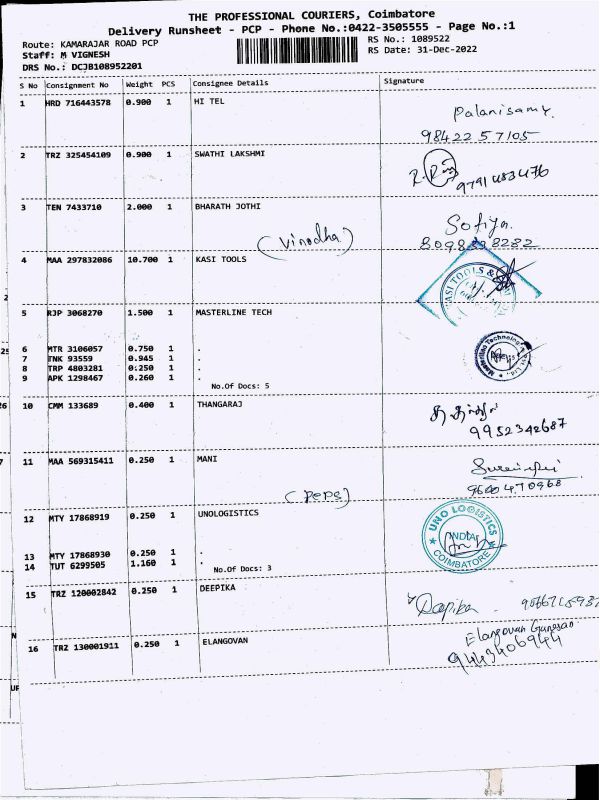 THE PROFESSIONAL COURIERS, Coimbatore
Delivery Runsheet - PCP - Phone No.:0422-3505555 - Page No.:1
Route: KAMARAJAR ROAD PCP RS No.: 1089522
Staff: M VIGNESH RS Date: 31-Dec-2022
DRS No.: DCJB108952201
S No Consignment No Weight PCS Consignee Details Signature
1 HRD 716443578 0.900 1 HI TEL Palanisamy
98422 57105
2 TRZ 325454109 0.900 1 SWATHI LAKSHMI
9791483476
3 TEN 7433710 2.000 1 BHARATH JOTHI Sofiya.
(Vinodha)
4 MAA 297832086 10.700 1 KASI TOOLS
KASI TOOLS &
5 RJP 3068270 1.500 1 MASTERLINE TECH
6 MTR 3106057 0.750 1 .
7 TNK 93559 0.945 1 .
8 TRP 4803281 0.250 1 .
9 APK 1298467 0.260 1 .
No.Of Docs: 5
10 CMM 133689 0.400 1 THANGARAJ
9952342687
11 MAA 569315411 0.250 1 MANI
9600470968
(Peps)
12 MTY 17868919 0.250 1 UNOLOGISTICS
UNO LOGISTICS
INDIA
COIMBATORE
13 MTY 17868930 0.250 1 .
14 TUT 6299505 1.160 1 .
No.Of Docs: 3
15 TRZ 120002842 0.250 1 DEEPIKA
16 TRZ 130001911 0.250 1 ELANGOVAN Elangovan Gunesan
9443406944